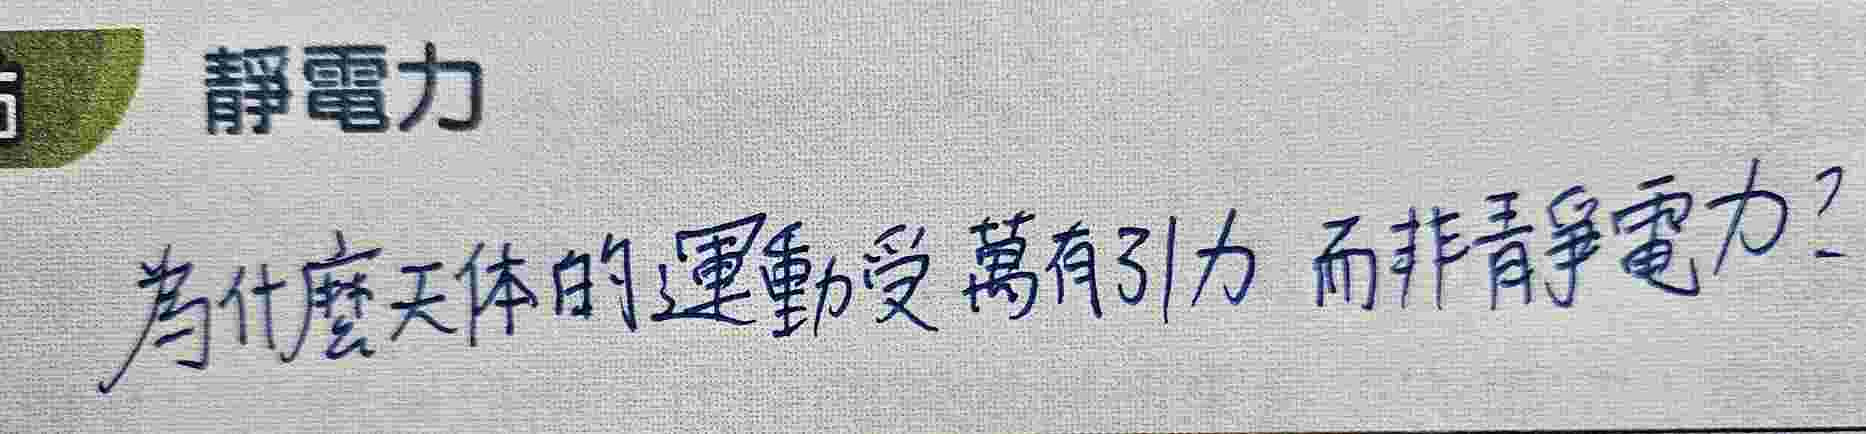 靜電力
為什麼天体的運動受萬有引力 而非靜電力?